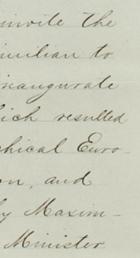 invite the
milian to
inaugurate
which resulted
phical Euro-
on, and
by Maxim-
Minister